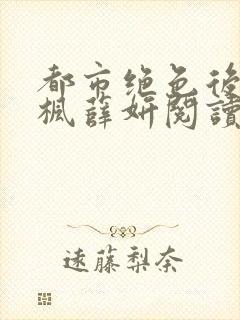 都市绝色後
楓薛妍閱讀
遠藤梨奈